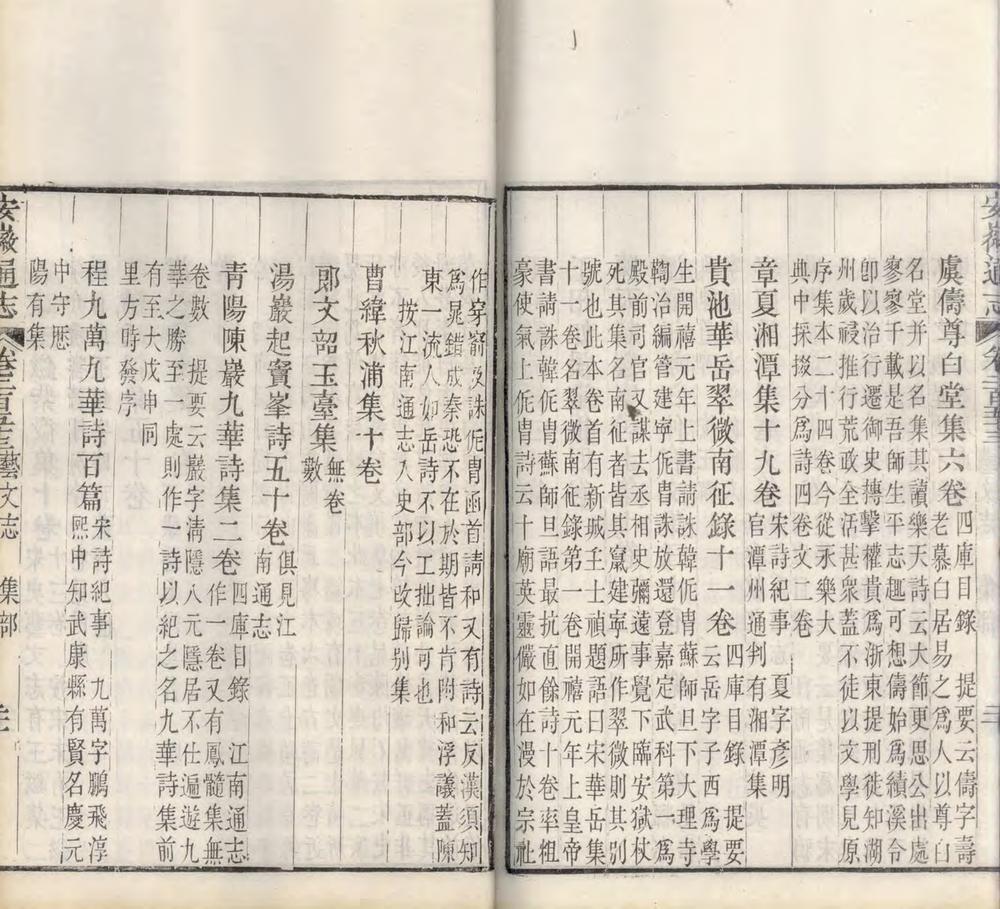 安徽通志
虞儔尊白堂集六卷 四庫目錄 提要云儔字壽
老慕白居易之爲人以尊白
名堂并以名集其讀樂天詩云大節更思公出處
寥寥千載是吾師生平志趣可想儔始爲績溪令
卽以治行遷御史摶擊權貴爲浙東提刑徙知湖
州歲祲推行荒政全活甚衆蓋不徒以文學見原
序集本二十四卷今從永樂大
典中採掇分爲詩四卷文二卷
章夏湘潭集十九卷 宋詩紀事 夏字彥明
官潭州通判有湘潭集
貴池華岳翠微南征錄十一卷 四庫目錄 提要
云岳字子西爲學
生開禧元年上書請誅韓侂冑蘇師旦下大理寺
鞫治編管建寧侂冑誅放還登嘉定武科第一爲
殿前司官又謀去丞相史彌遠事覺下臨安獄杖
死其集名南征者皆其竄建寧所作翠微則其别
號也此本卷首有新城王士禎題語曰宋華岳集
十一卷名翠微南征錄第一卷開禧元年上皇帝
書請誅韓侂冑蘇師旦語最抗直餘詩十卷率粗
豪使氣上侂冑詩云十廟英靈儼如在漫於宗社
作穿窬及誅侂冑函首請和又有詩云反漢須知
爲晁錯成秦恐不在於期皆不肯附和浮議蓋陳
東一流人如岳詩不以工拙論可也
按江南通志入史部今改歸别集
曹緯秋浦集十卷
郎文韶玉臺集 無卷
數
湯巖起賓峯詩五十卷 俱見江
南通志
青陽陳巖九華詩集二卷 四庫目錄 江南通志
作一卷又有鳳髓集無
卷數 提要云巖字淸隱入元隱居不仕遍遊九
華之勝至一處則作一詩以紀之名九華詩集前
有至大戊申同
里方時發序
程九萬九華詩百篇 宋詩紀事 九萬字鵬飛淳
熙中知武康縣有賢名慶元
中守歷
陽有集
安徽通志 藝文志 集部